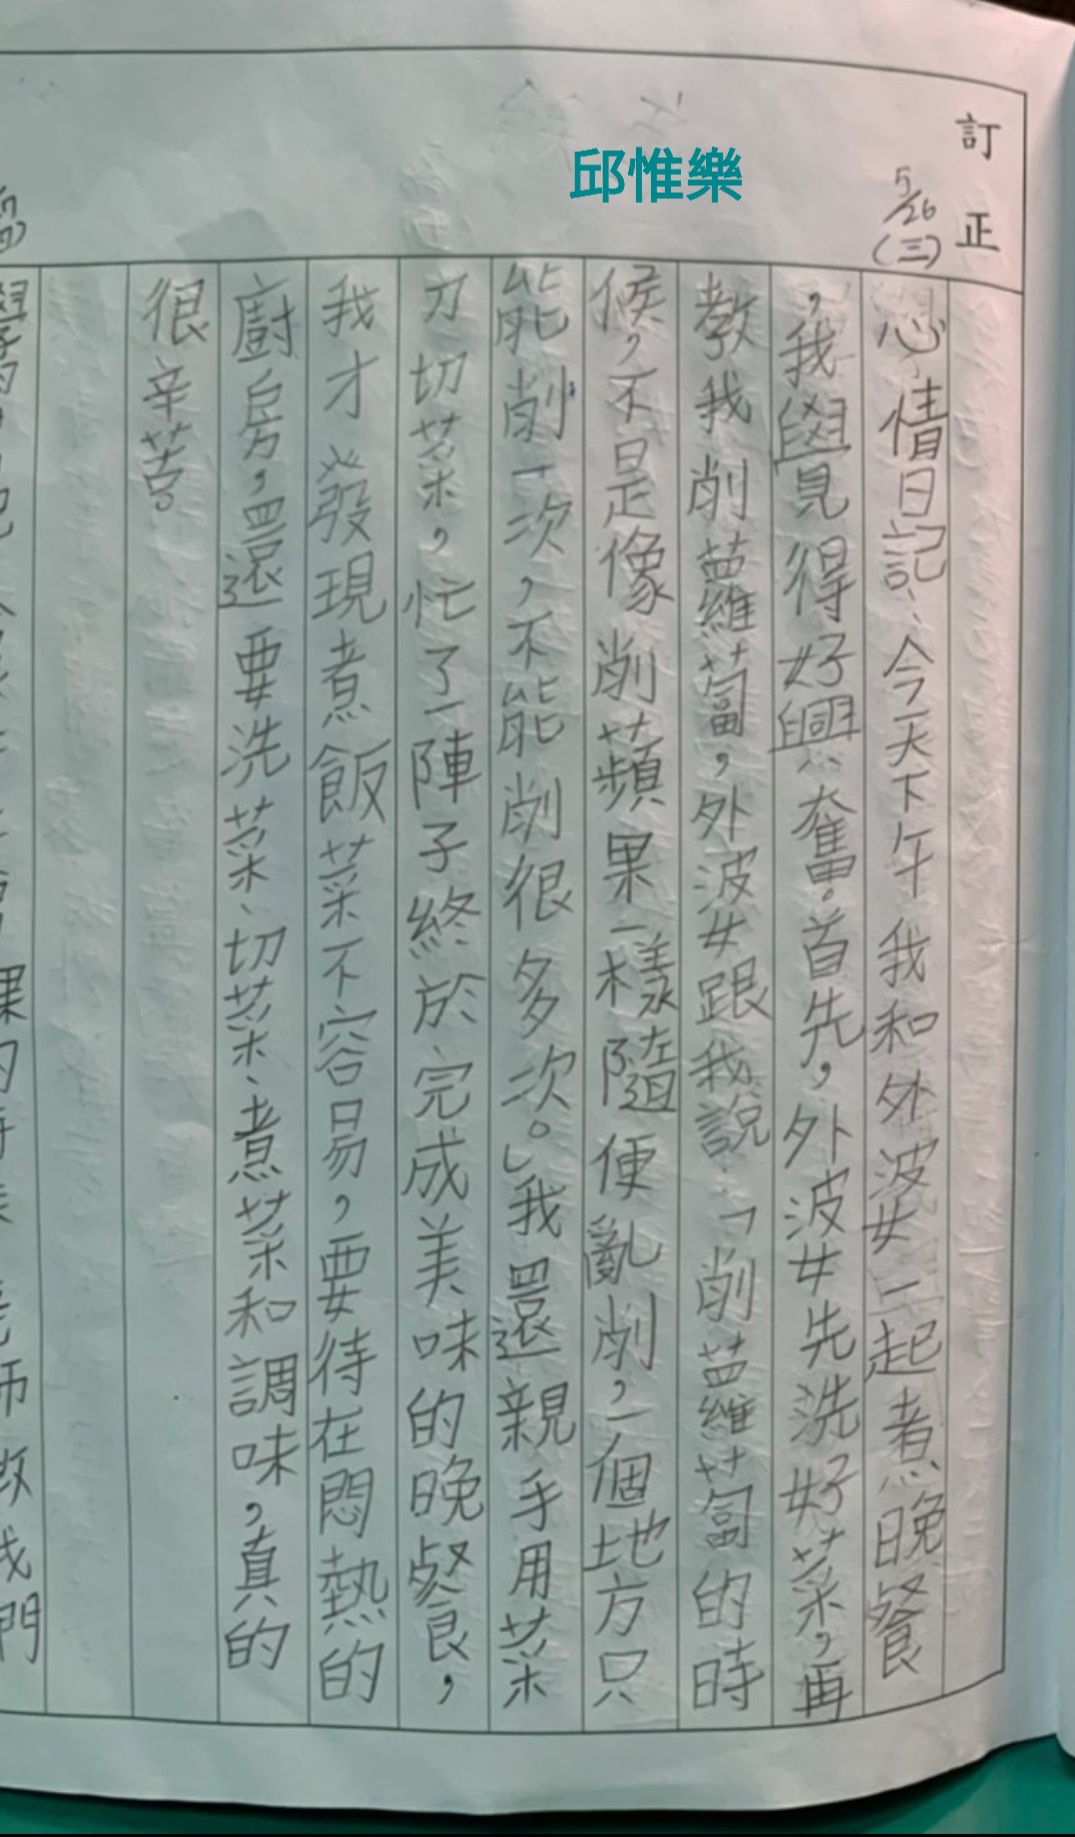 訂正
5/26(三)
邱惟樂
心情日記：今天下午我和外婆一起煮晚餐
，我覺得好興奮。首先，外婆先洗好菜，再
教我削蘿蔔，外婆跟我說「削蘿蔔的時
候，不是像削蘋果一樣隨便亂削，一個地方只
能削一次，不能削很多次。」我還親手用菜
刀切菜，忙了一陣子終於完成美味的晚餐，
我才發現煮飯菜不容易，要待在悶熱的
廚房，還要洗菜、切菜、煮菜和調味，真的
很辛苦。